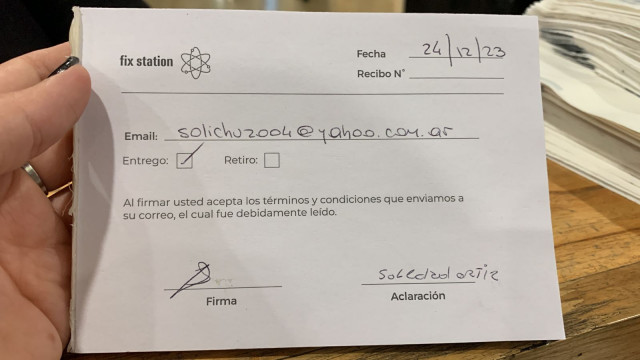 fix station
Fecha 24/12/23
Recibo N°
Email: solichu2004@yahoo.com.ar
Entrego: Retiro:
Al firmar usted acepta los términos y condiciones que enviamos a
su correo, el cual fue debidamente leído.
Soledad ortiz
Firma Aclaración